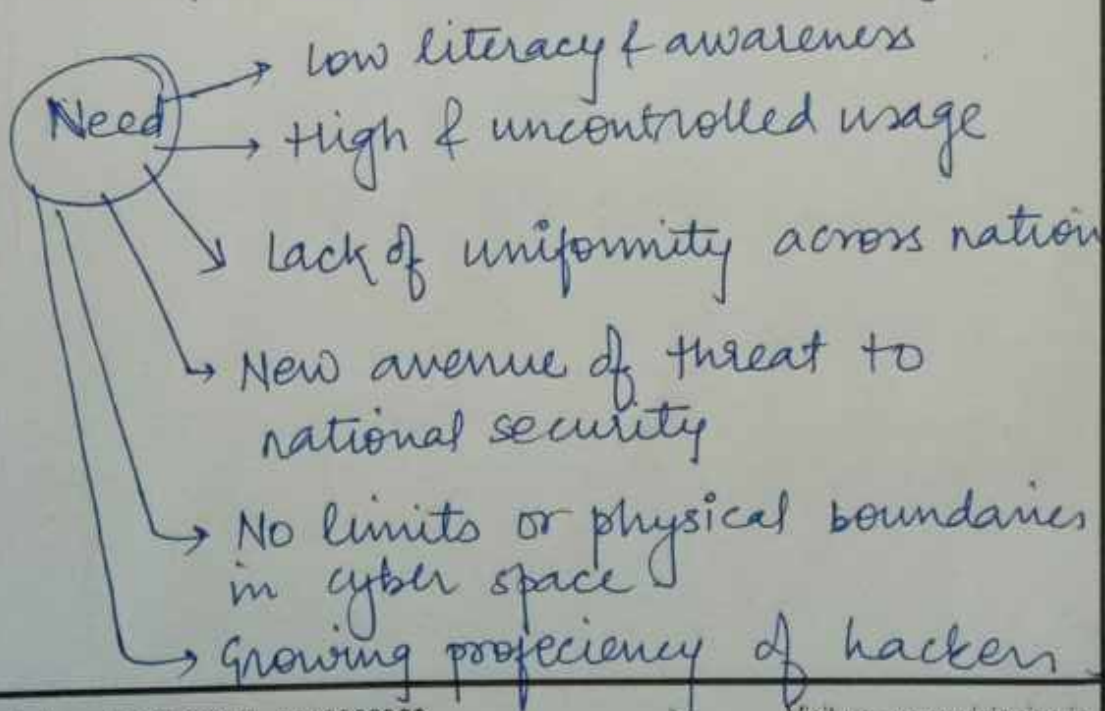 Need
Low literacy & awareness
High & uncontrolled usage
Lack of uniformity across nation
New avenue of threat to
national security
No limits or physical boundaries
in cyber space
Growing profeciency of hackers